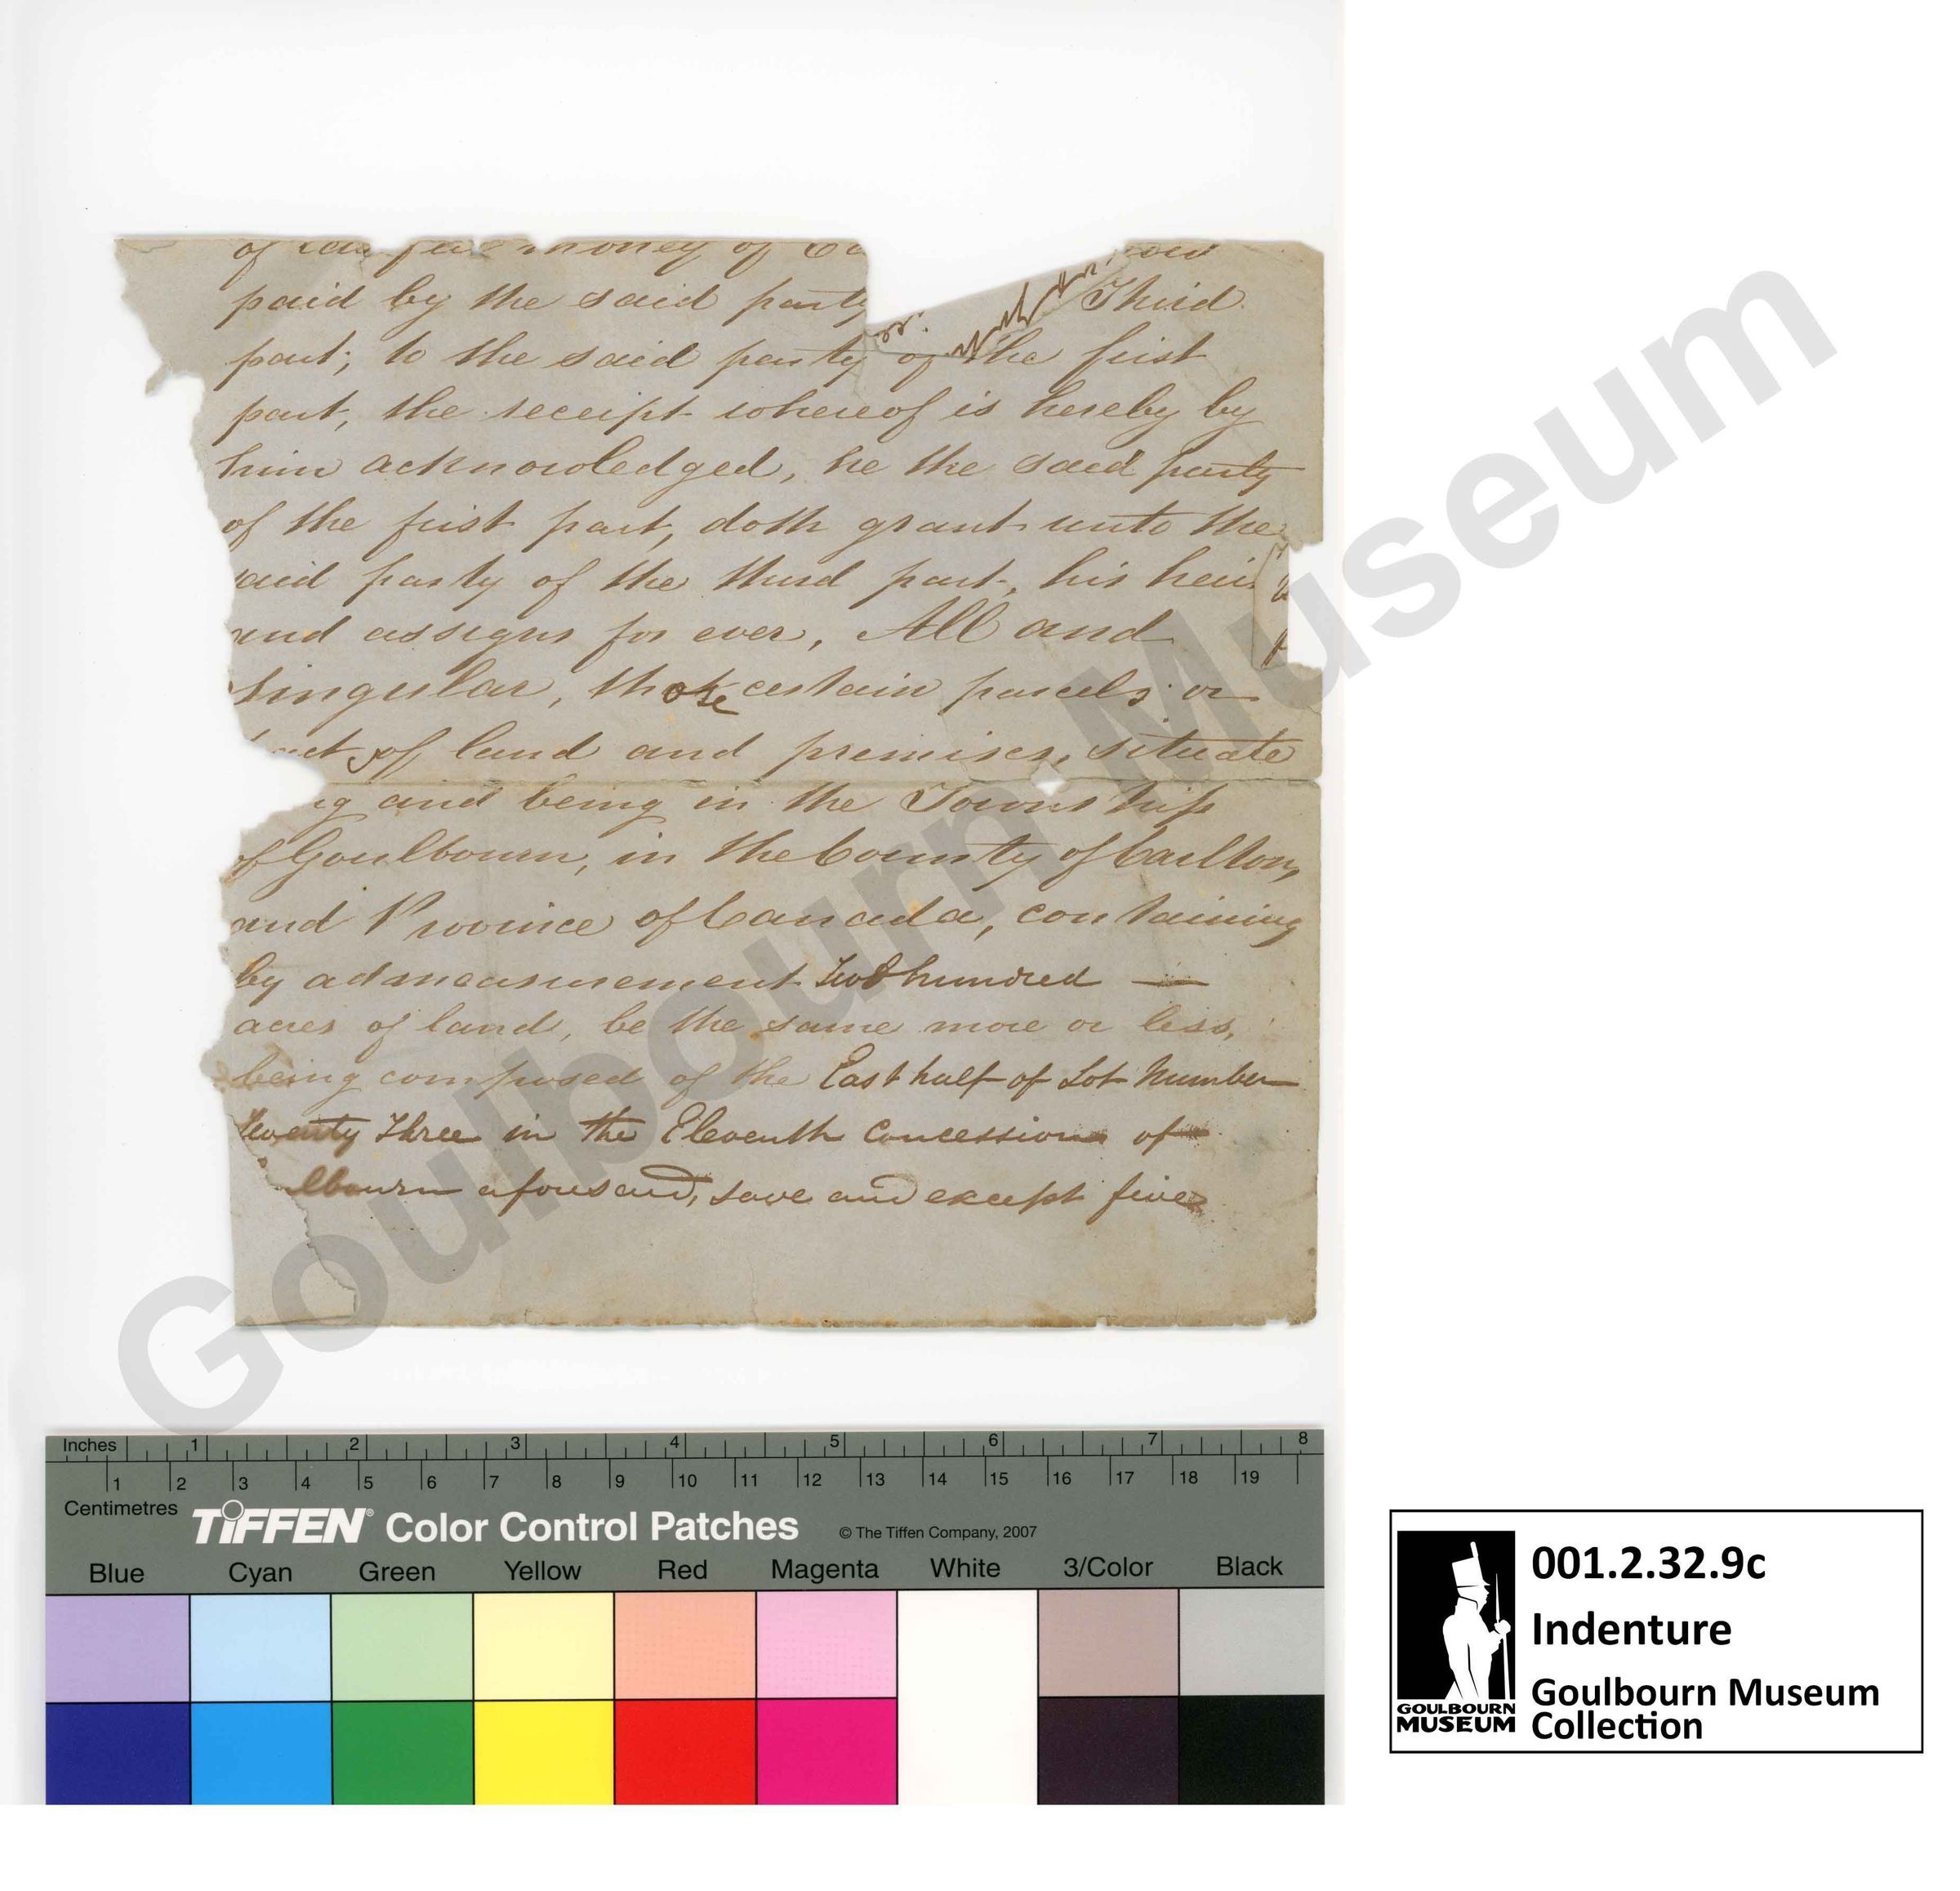 of lawful money of Ca
paid by the said party Third
part; to the said party of the first
part, the receipt whereof is hereby by
him acknowledged, he the said party
of the first part, doth grant unto the
said party of the third part, his heirs
and assigns for ever, All and
singular, those certain parcels or
tract of land and premises, situate
ig and being in the Township
of Goulbourn, in the County of Carlton,
and Province of Canada, containing
by admeasurement Two hundred —
acres of land, be the same more or less,
being composed of the East half of Lot Number
Twenty Three in the Eleventh Concession of
lbourn aforesaid, save and except five
Goulbourn Museum
Inches 1 2 3 4 5 6 7 8
1 2 3 4 5 6 7 8 9 10 11 12 13 14 15 16 17 18 19
Centimetres
TIFFEN® Color Control Patches © The Tiffen Company, 2007
Blue Cyan Green Yellow Red Magenta White 3/Color Black
001.2.32.9c
Indenture
Goulbourn Museum
Collection
GOULBOURN
MUSEUM